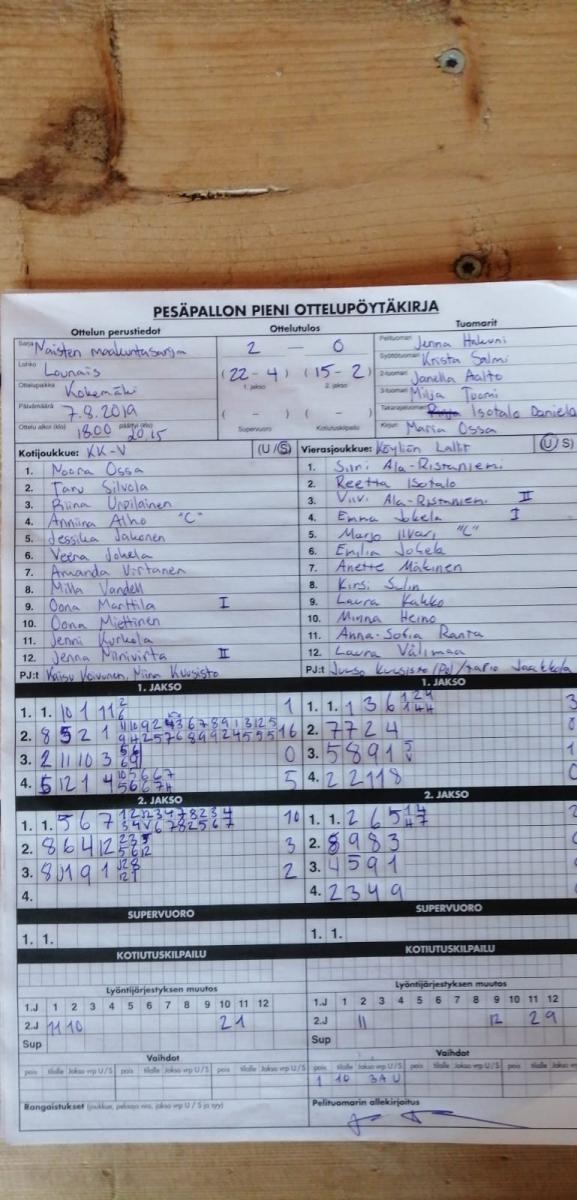 PESÄPALLON PIENI OTTELUPÖYTÄKIRJA
Ottelun perustiedot
Ottelutulos
Tuomarit
Sarja Naisten maakuntasarja
Lohko Lounais
Ottelupaikka Kokemäki
Päivämäärä 7.8.2019
Ottelu alkoi (klo) 18.00 päättyi (klo) 20.15
2 — 0
(22 - 4) (15 - 2)
1. jakso 2. jakso
( - ) ( - )
Supervuoro Kotiutuskilpailu
Pelituomari Jenna
Syöttötuomari Krista Salmi
2-tuomari Janella Aalto
3-tuomari Milja Tuomi
Takarajatuomari Isotalo Daniela
Kirjuri Maria Ossa
Kotijoukkue: KK-V (U/S)
1. Noora Ossa
2. Taru Silvola
3. Riina
4. Anniina Alho "C"
5. Jessika Jakonen
6. Veera Jokela
7. Amanda Virtanen
8. Milla Vandell
9. Oona Marttila I
10. Oona Miettinen
11. Jenni Kurkela
12. Jenna Minivirta II
PJ:t Kaisu Koivunen, Miina Kuusisto
Vierasjoukkue: Köyliön Lallit (U/S)
1. Siiri Ala-Ristaniemi
2. Reetta Isotalo
3. Viivi Ala-Ristaniemi II
4. Emma Jokela I
5. Marjo "C"
6. Emilia Jokela
7. Anette Mäkinen
8. Kirsi Sulin
9. Laura Kahko
10. Minna Heino
11. Anna-Sofia Ranta
12. Laura Välimaa
PJ:t Juuso Kuusisto (PJ) / Jaakkola
1. JAKSO
1. 1. 10 1 11 1
2. 8 5 2 1 16
3. 2 11 10 3 0
4. 5 12 1 4 5
1. JAKSO
1. 1. 1 3 6 3
2. 7 7 2 4
3. 5 8 9 1 1
4. 2 2 11 8
2. JAKSO
1. 1. 5 6 7 10
2. 8 6 4 12 3
3. 8 11 9 1 2
4.
2. JAKSO
1. 1. 2 6 5
2. 8 9 8 3
3. 4 5 9 1
4. 2 3 4 9
SUPERVUORO
1. 1.
SUPERVUORO
1. 1.
KOTIUTUSKILPAILU
KOTIUTUSKILPAILU
Lyöntijärjestyksen muutos
1.J 1 2 3 4 5 6 7 8 9 10 11 12
2.J 11 10 2 1
Sup
Lyöntijärjestyksen muutos
1.J 1 2 3 4 5 6 7 8 9 10 11 12
2.J 11 12 2 9
Sup
Vaihdot
pois tilalle Jakso vrp U / S pois tilalle Jakso vrp U / S pois tilalle Jakso vrp U / S
Vaihdot
pois tilalle Jakso vrp U / S pois tilalle Jakso vrp U / S pois
1 10 3A U
Rangaistukset (joukkue, pelaaja nro, jakso vrp U / S ja syy)
Pelituomarin allekirjoitus